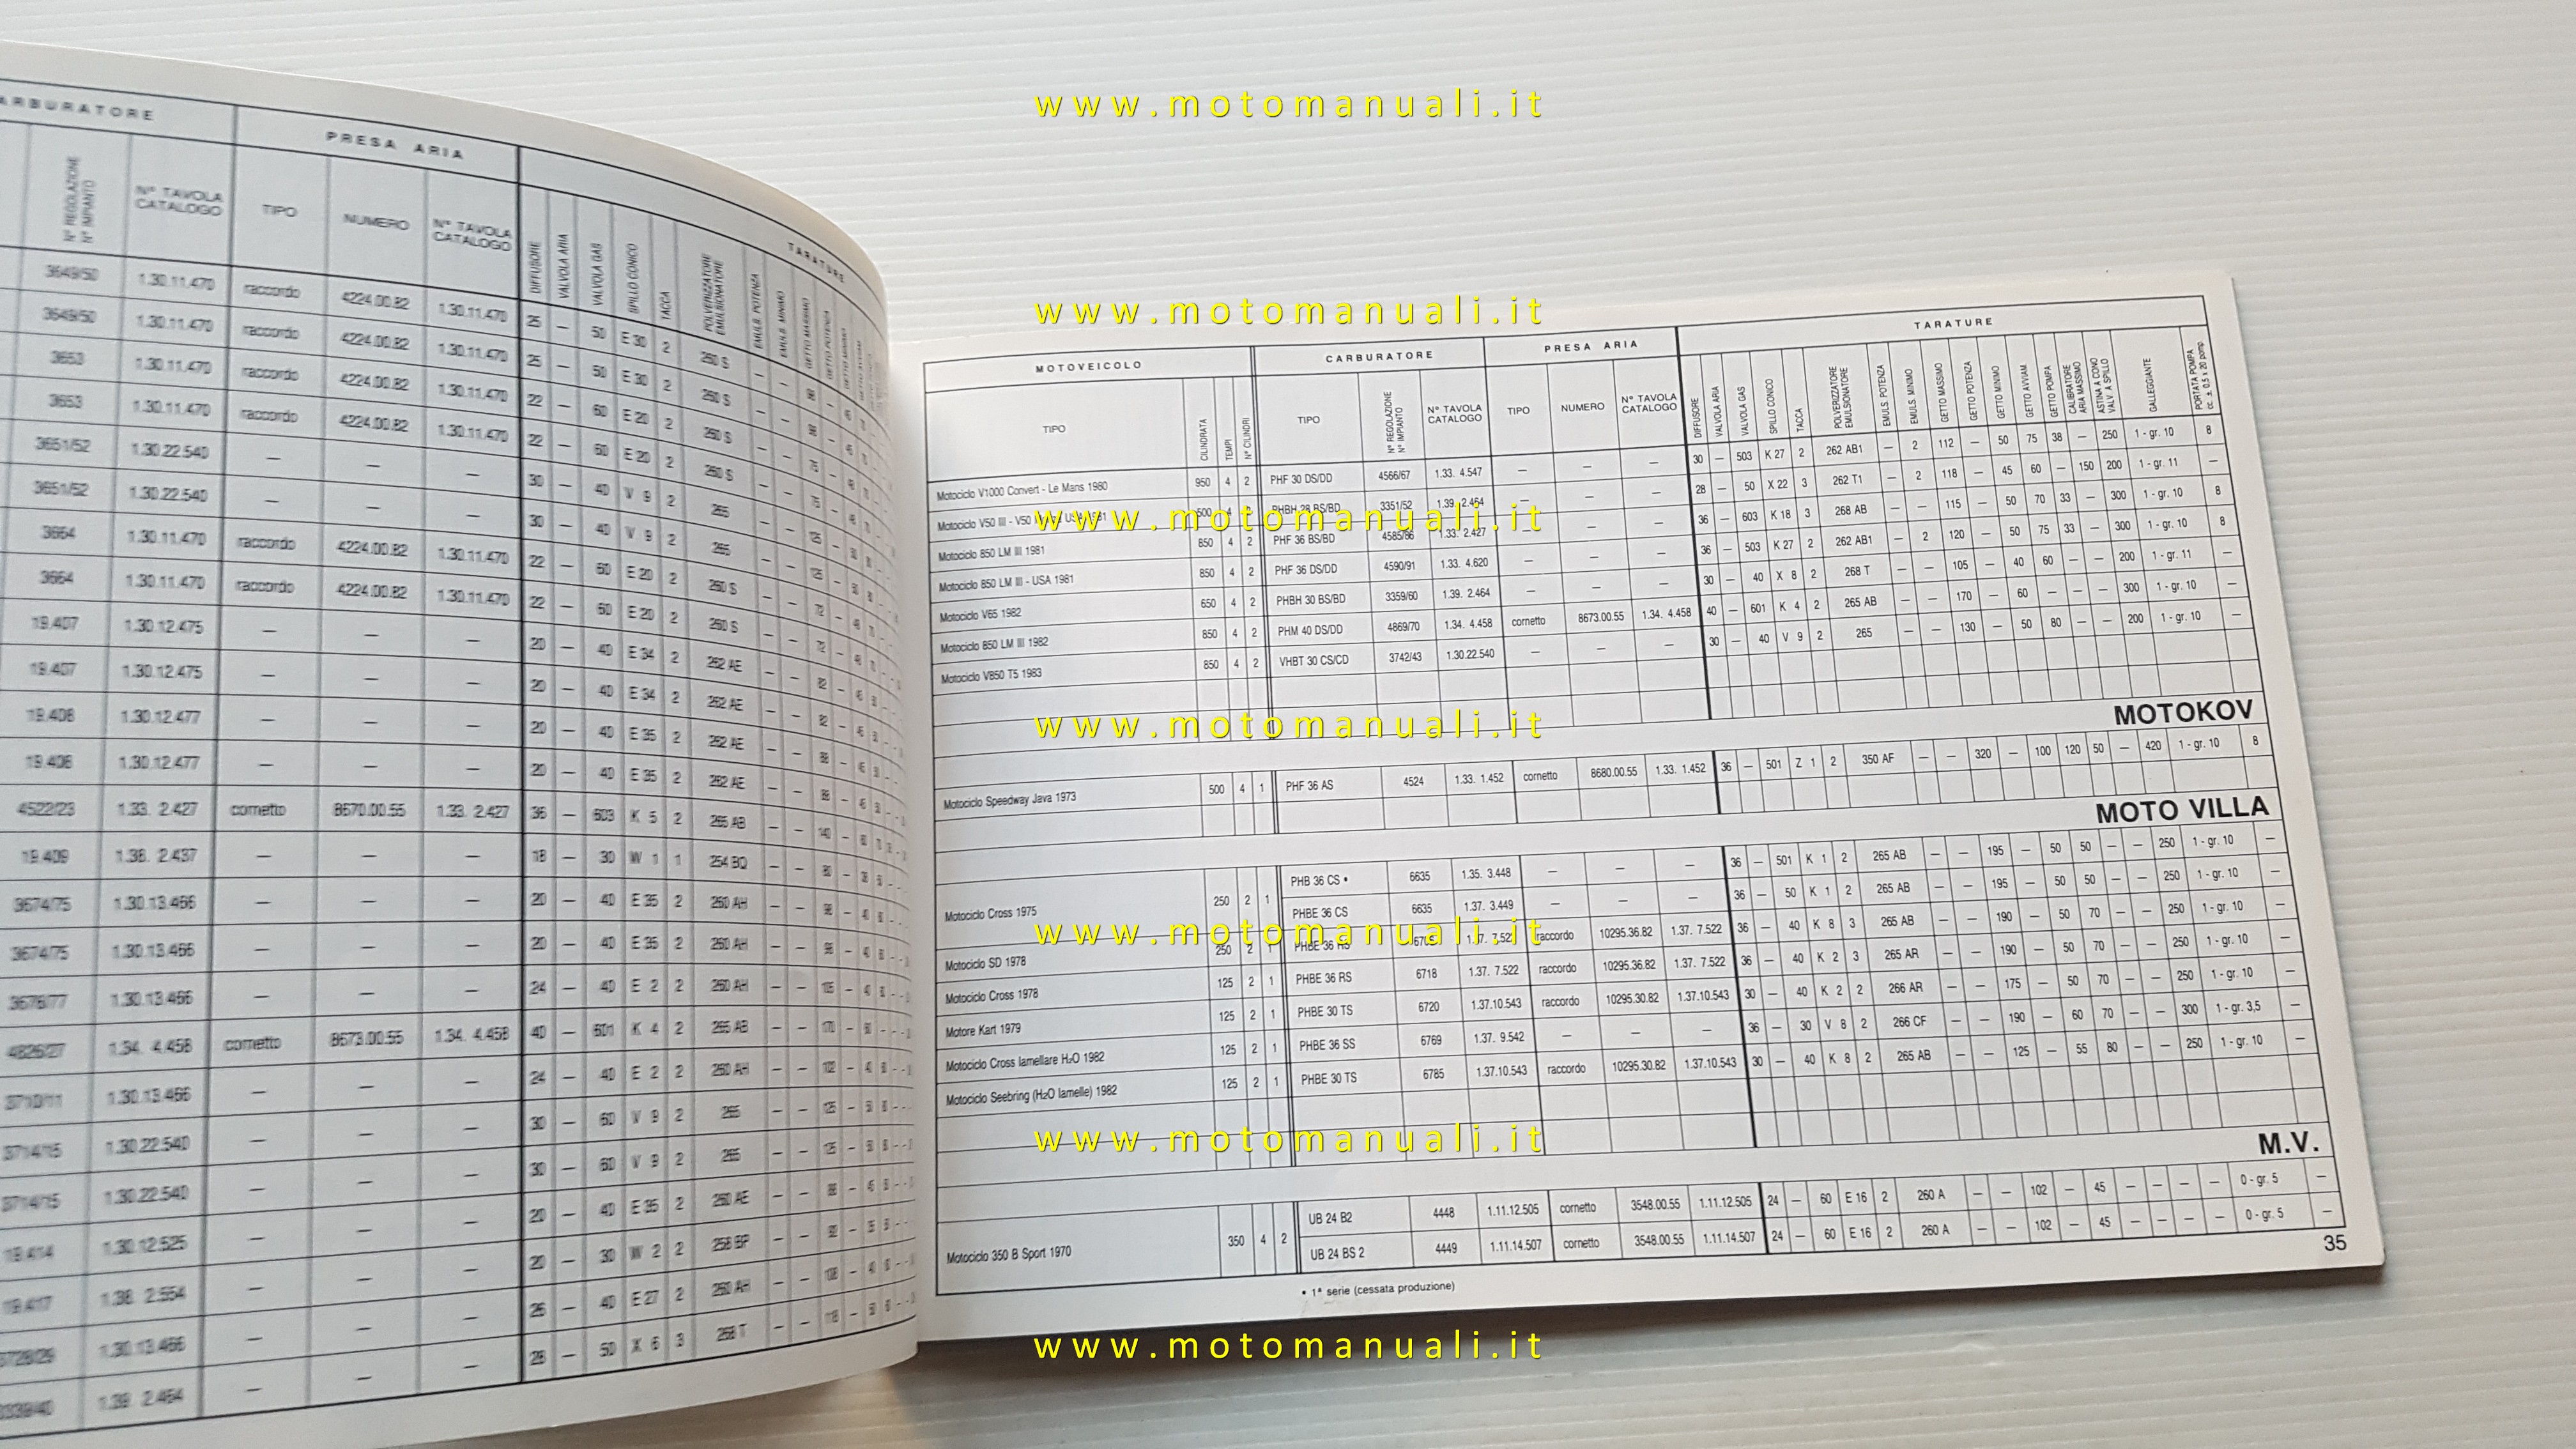 www.motomanuali.it
www.motomanuali.it
www.motomanuali.it
www.motomanuali.it
www.motomanuali.it
www.motomanuali.it
www.motomanuali.it
PRESA ARIA
TARATURE
Nº REGOLAZIONE Nº IMPIANTO
Nº TAVOLA CATALOGO
TIPO
NUMERO
Nº TAVOLA CATALOGO
DIFFUSORE
VALVOLA ARIA
VALVOLA GAS
SPILLO CONICO
TACCA
POLVERIZZATORE EMULSIONATORE
EMULS. POTENZA
EMULS. MINIMO
3649/50 1.30.11.470 raccordo 4224.00.82 1.30.11.470 25 — 50 E 30 2 260 S
3649/50 1.30.11.470 raccordo 4224.00.82 1.30.11.470 25 — 50 E 30 2 260 S
3653 1.30.11.470 raccordo 4224.00.82 1.30.11.470 22 — 60 E 20 2 260 S
3653 1.30.11.470 raccordo 4224.00.82 1.30.11.470 22 — 60 E 20 2 260 S
3651/52 1.30.22.540 — — — 30 — 40 V 9 2 265
3651/52 1.30.22.540 — — — 30 — 40 V 9 2 265
3664 1.30.11.470 raccordo 4224.00.82 1.30.11.470 22 — 60 E 20 2 260 S
3664 1.30.11.470 raccordo 4224.00.82 1.30.11.470 22 — 60 E 20 2 260 S
19.407 1.30.12.475 — — — 20 — 40 E 34 2 262 AE
19.407 1.30.12.475 — — — 20 — 40 E 34 2 262 AE
19.408 1.30.12.477 — — — 20 — 40 E 35 2 262 AE
19.408 1.30.12.477 — — — 20 — 40 E 35 2 262 AE
4522/23 1.33. 2.427 cornetto 8670.00.55 1.33. 2.427 36 — 603 K 5 2 265 AB
19.409 1.38. 2.437 — — — 18 — 30 W 1 1
3674/75 1.30.13.466 — — — 20 — 40 E 35 2 260 AH
3674/75 1.30.13.466 — — — 20 — 40 E 35 2 260 AH
3676/77 1.30.13.466 — — — 24 — 40 E 2 2 260 AH
4826/27 1.34. 4.458 cornetto 8673.00.55 1.34. 4.458 40 — 601 K 4 2 265 AB
1.30.13.466 — — — 24 — 40 E 2 2 260 AH
3714/15 1.30.22.540 — — — 30 — 60 V 9 2 265
3714/15 1.30.22.540 — — — 30 — 60 V 9 2 265
19.414 1.30.12.525 — — — 20 — 40 E 35 2 260 AE
19.417 1.38. 2.554 — — — 20 — 30 W 2 2
1.30.13.466 — — — 26 — 40 E 27 2 260 AH
1.39. 2.464 — — — 28 — 50 X 6 3 268 T
MOTOVEICOLO
CARBURATORE
PRESA ARIA
TARATURE
TIPO
CILINDRATA
TEMPI
Nº CILINDRI
TIPO
Nº REGOLAZIONE Nº IMPIANTO
Nº TAVOLA CATALOGO
TIPO
NUMERO
Nº TAVOLA CATALOGO
DIFFUSORE
VALVOLA ARIA
VALVOLA GAS
SPILLO CONICO
TACCA
POLVERIZZATORE EMULSIONATORE
EMULS. POTENZA
EMULS. MINIMO
GETTO MASSIMO
GETTO POTENZA
GETTO MINIMO
GETTO AVVIAM.
GETTO POMPA
CALIBRATORE ARIA MASSIMO
ASTINA A CONO VALV. A SPILLO
GALLEGGIANTE
PORTATA POMPA cc. ± 0,5 x 20 pomp.
Motociclo V1000 Convert - Le Mans 1980 950 4 2 PHF 30 DS/DD 4566/67 1.33. 4.547 — — — 30 — 503 K 27 2 262 AB1 — 2 112 — 50 75 38 — 250 1 - gr. 10 8
Motociclo V50 III - V50 USA 1981 500 4 2 PHBH 28 BS/BD 3351/52 1.39. 2.464 — — — 28 — 50 X 22 3 262 T1 — 2 118 — 45 60 — 150 200 1 - gr. 11 —
Motociclo 850 LM III 1981 850 4 2 PHF 36 BS/BD 4585/86 1.33. 2.427 — — — 36 — 603 K 18 3 268 AB — — 115 — 50 70 33 — 300 1 - gr. 10 8
Motociclo 850 LM III - USA 1981 850 4 2 PHF 36 DS/DD 4590/91 1.33. 4.620 — — — 36 — 503 K 27 2 262 AB1 — 2 120 — 50 75 33 — 300 1 - gr. 10 8
Motociclo V65 1982 650 4 2 PHBH 30 BS/BD 3359/60 1.39. 2.464 — — — 30 — 40 X 8 2 268 T — — 105 — 40 60 — — 200 1 - gr. 11 —
Motociclo 850 LM III 1982 850 4 2 PHM 40 DS/DD 4869/70 1.34. 4.458 cornetto 8673.00.55 1.34. 4.458 40 — 601 K 4 2 265 AB — — 170 — 60 — — — 300 1 - gr. 10 —
Motociclo V850 T5 1983 850 4 2 VHBT 30 CS/CD 3742/43 1.30.22.540 — — — 30 — 40 V 9 2 265 — — 130 — 50 80 — — 200 1 - gr. 10 —
MOTOKOV
Motociclo Speedway Java 1973 500 4 1 PHF 36 AS 4524 1.33. 1.452 cornetto 8680.00.55 1.33. 1.452 36 — 501 Z 1 2 350 AF — — 320 — 100 120 50 — 420 1 - gr. 10 8
MOTO VILLA
Motociclo Cross 1975 250 2 1 PHB 36 CS • 6635 1.35. 3.448 — — — 36 — 501 K 1 2 265 AB — — 195 — 50 50 — — 250 1 - gr. 10 —
PHBE 36 CS 6635 1.37. 3.449 — — — 36 — 50 K 1 2 265 AB — — 195 — 50 50 — — 250 1 - gr. 10 —
Motociclo SD 1978 250 2 1 PHBE 36 RS 1.37. 7.522 raccordo 10295.36.82 1.37. 7.522 36 — 40 K 8 3 265 AB — — 190 — 50 70 — — 250 1 - gr. 10 —
Motociclo Cross 1978 125 2 1 PHBE 36 RS 6718 1.37. 7.522 raccordo 10295.36.82 1.37. 7.522 36 — 40 K 2 3 265 AR — — 190 — 50 70 — — 250 1 - gr. 10 —
Motore Kart 1979 125 2 1 PHBE 30 TS 6720 1.37.10.543 raccordo 10295.30.82 1.37.10.543 30 — 40 K 2 2 266 AR — — 175 — 50 70 — — 250 1 - gr. 10 —
Motociclo Cross lamellare H₂O 1982 125 2 1 PHBE 36 SS 6769 1.37. 9.542 — — — 36 — 30 V 8 2 266 CF — — 190 — 60 70 — — 300 1 - gr. 3,5 —
Motociclo Seebring (H₂O lamelle) 1982 125 2 1 PHBE 30 TS 6785 1.37.10.543 raccordo 10295.30.82 1.37.10.543 30 — 40 K 8 2 265 AB — — 125 — 55 80 — — 250 1 - gr. 10 —
M.V.
Motociclo 350 B Sport 1970 350 4 2 UB 24 B2 4448 1.11.12.505 cornetto 3548.00.55 1.11.12.505 24 — 60 E 16 2 260 A — — 102 — 45 — — — — 0 - gr. 5 —
UB 24 BS 2 4449 1.11.14.507 cornetto 3548.00.55 1.11.14.507 24 — 60 E 16 2 260 A — — 102 — 45 — — — — 0 - gr. 5 —
• 1ª serie (cessata produzione)
35